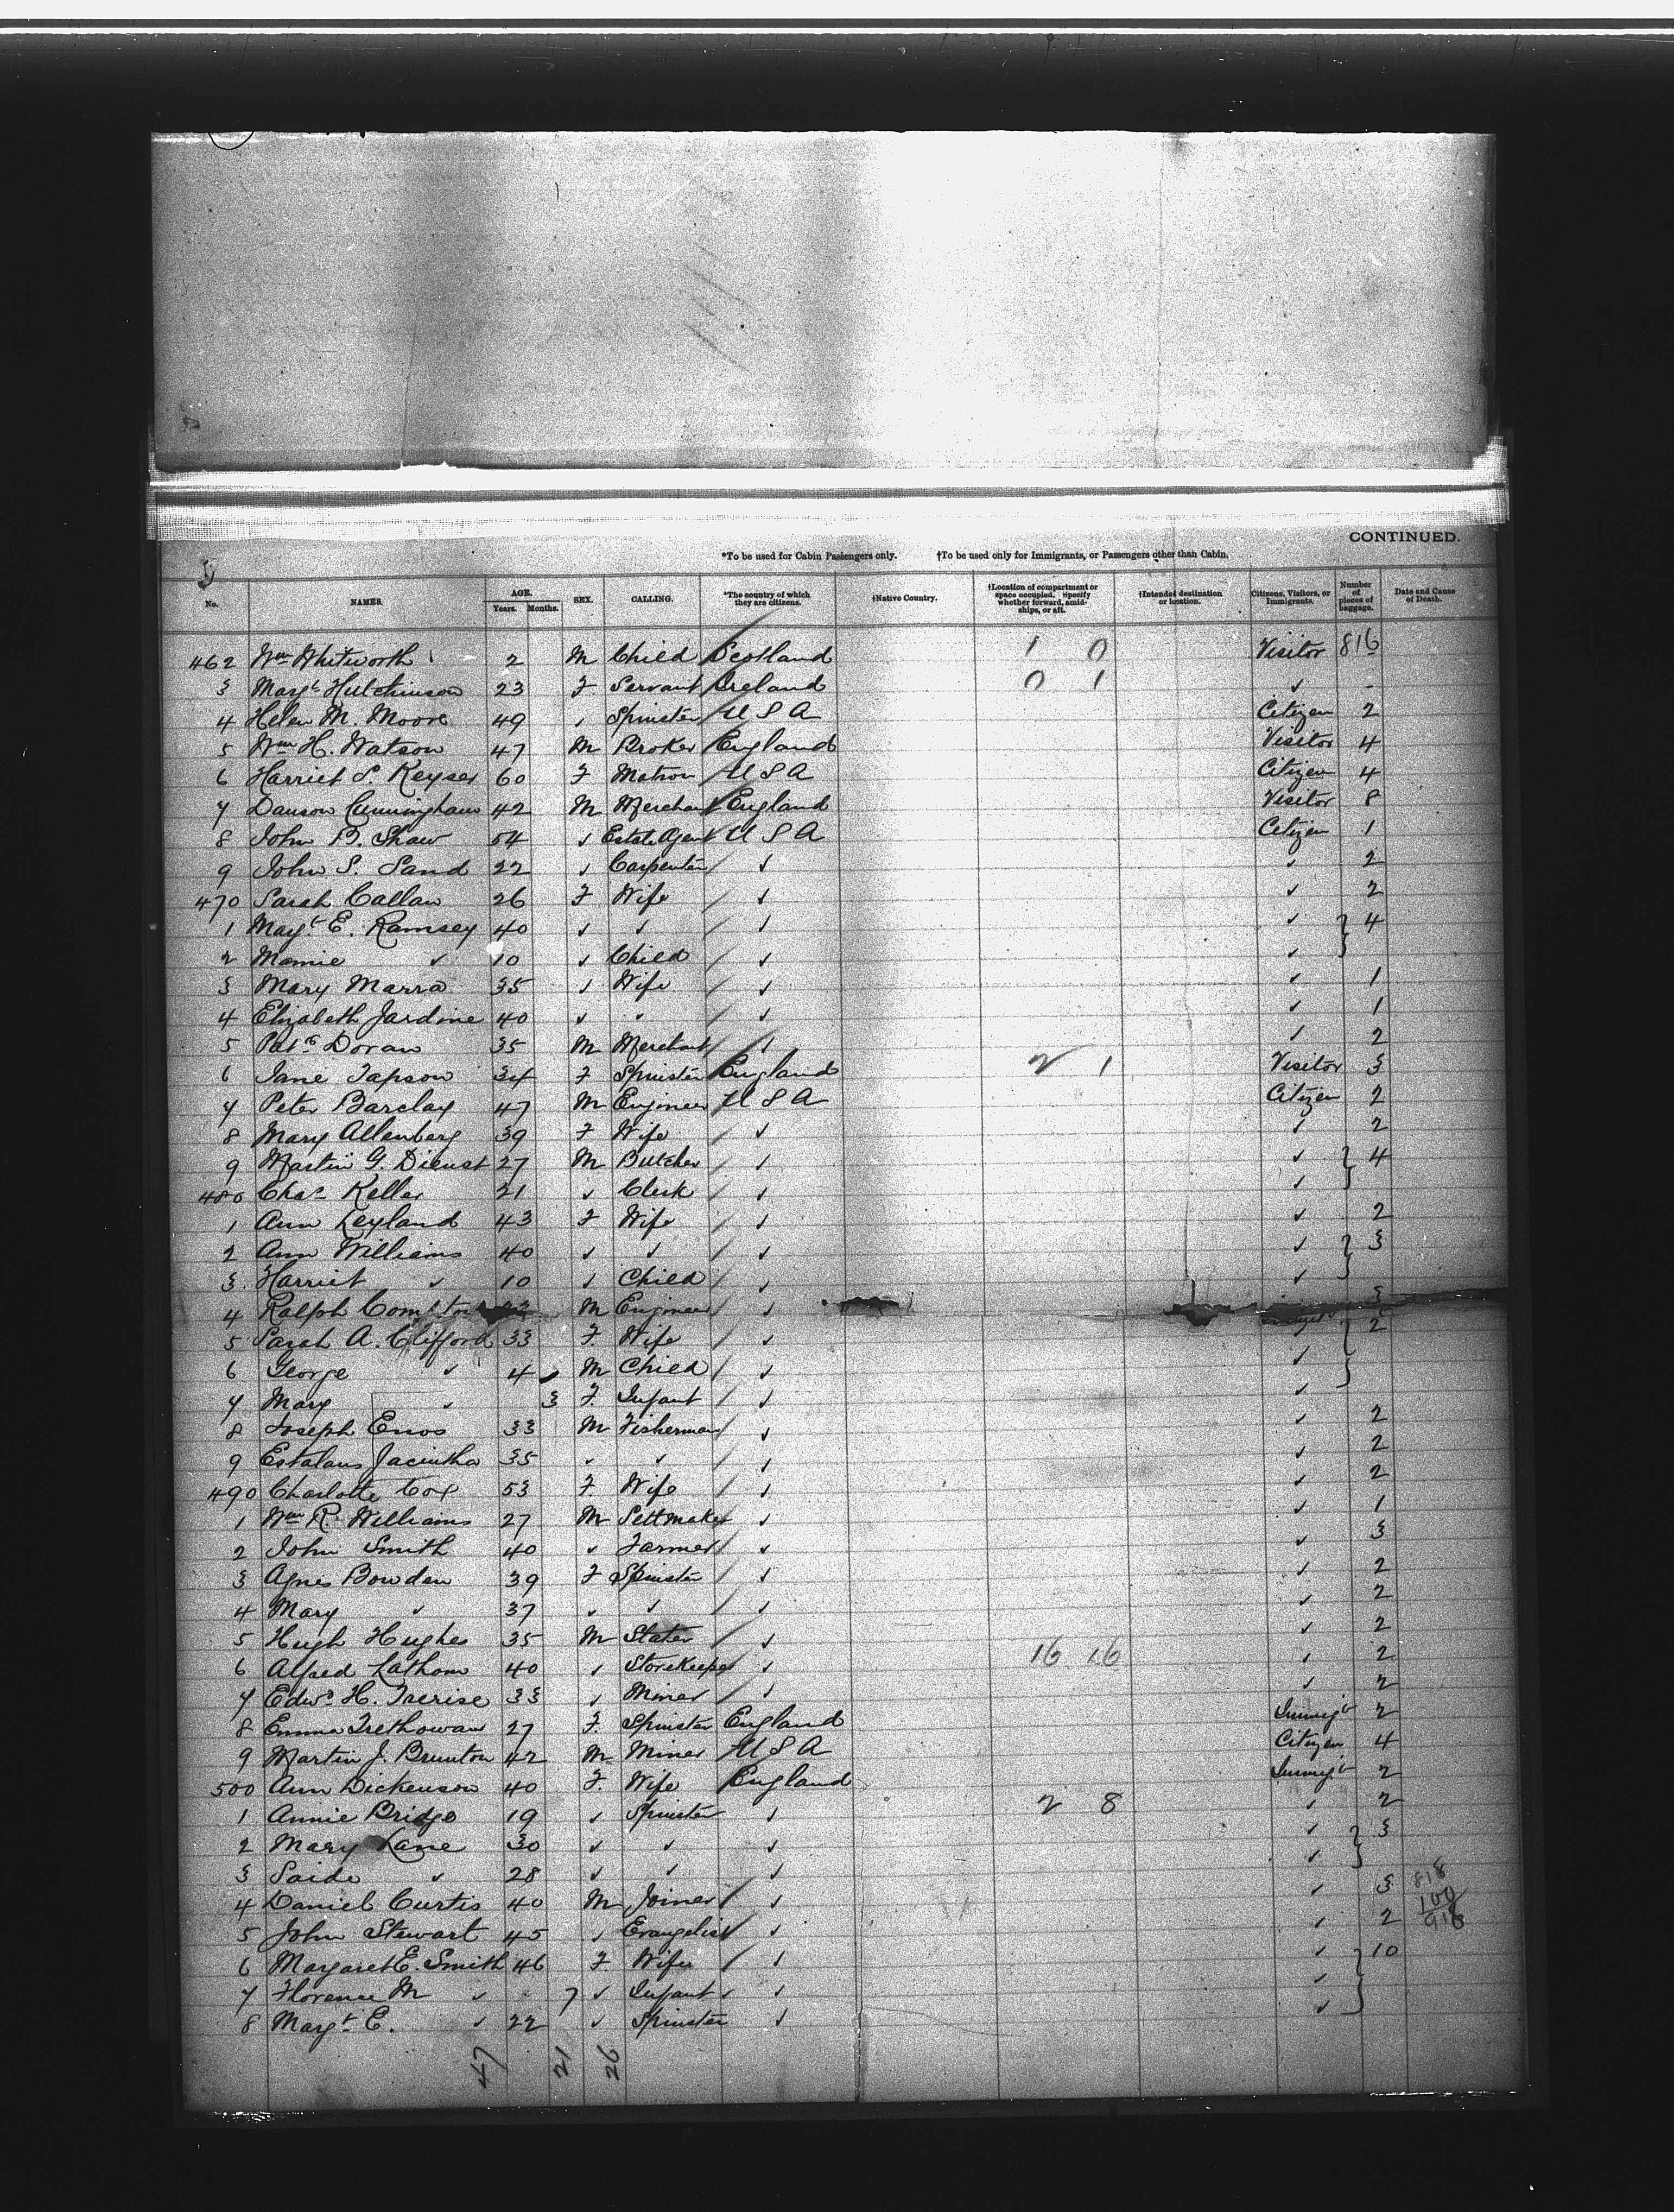 CONTINUED.
*To be used for Cabin Passengers only. †To be used only for Immigrants, or Passengers other than Cabin.
No. NAMES. AGE. Years. Months. SEX. CALLING. *The country of which they are citizens. †Native Country. †Location of compartment or space occupied. Specify whether forward, amid-ships, or aft. †Intended destination or location. Citizens, Visitors, or Immigrants. Number of pieces of baggage. Date and Cause of Death.
462 Wm Whitworth 2 M Child Scotland 1 0 Visitor 816
3 Margt Hutchinson 23 F Servant Ireland 0 1 ✓ -
4 Helen M. Moore 49 ✓ Spinster U S A Citizen 2
5 Wm H. Watson 47 M Broker England Visitor 4
6 Harriet S. Keyser 60 F Matron U S A Citizen 4
7 Dawson Cunningham 42 M Merchant England Visitor 8
8 John B. Shaw 54 ✓ Estate Agent U S A Citizen 1
9 John S. Sand 22 ✓ Carpenter ✓ ✓ 2
470 Sarah Callan 26 F Wife ✓ ✓ 2
1 Magt E. Ramsey 40 ✓ ✓ ✓ ✓ } 4
2 Mamie ✓ 10 ✓ Child ✓ ✓
3 Mary Marra 35 ✓ Wife ✓ ✓ 1
4 Elizabeth Jardine 40 ✓ ✓ ✓ ✓ 1
5 Patk Doran 35 M Merchant ✓ ✓ 2
6 Jane Tapson 34 F Spinster England 2 1 Visitor 3
7 Peter Barclay 47 M Engineer U S A Citizen 2
8 Mary Allenberg 39 F Wife ✓ ✓ 2
9 Martin G. Dienst 27 M Butcher ✓ ✓ } 4
480 Chas Keller 21 ✓ Clerk ✓ ✓
1 Ann Leyland 43 F Wife ✓ ✓ 2
2 Ann Williams 40 ✓ ✓ ✓ ✓ } 3
3 Harriet ✓ 10 ✓ Child ✓ ✓
4 Ralph Compton M Engineer ✓
5 Sarah A. Clifford 33 F Wife ✓ } 2
6 George ✓ 4 M Child ✓ ✓
7 Mary ✓ 3 F Infant ✓ ✓
8 Joseph Enos 33 M Fisherman ✓ ✓ 2
9 Estalaus Jacintha 35 ✓ ✓ ✓ ✓ 2
490 Charlotte Cox 53 F Wife ✓ ✓ 2
1 Wm R. Williams 27 M Settmaker ✓ ✓ 1
2 John Smith 40 ✓ Farmer ✓ ✓ 3
3 Agnes Bowden 39 F Spinster ✓ ✓ 2
4 Mary ✓ 37 ✓ ✓ ✓ ✓ 2
5 Hugh Hughes 35 M Slater ✓ ✓ 2
6 Alfred Lathom 40 ✓ Storekeeper ✓ 16 16 ✓ 2
7 Edwd H. Trerise 33 ✓ Miner ✓ ✓ 2
8 Emma Trethowan 27 F Spinster England Immigt 2
9 Martin J. Brunton 42 M Miner U S A Citizen 4
500 Ann Dickenson 40 F Wife England Immigt 2
1 Annie Bridge 19 ✓ Spinster ✓ 2 8 ✓ 2
2 Mary Lane 30 ✓ ✓ ✓ ✓ } 3
3 Saide ✓ 28 ✓ ✓ ✓ ✓
4 Daniel Curtis 40 M Joiner ✓ ✓ 3 818
5 John Stewart 45 ✓ Evangelist ✓ ✓ 2 100 918
6 Margaret E. Smith 46 F Wife ✓ ✓ } 10
7 Florence M ✓ 7 ✓ Infant ✓ ✓
8 Margt E. ✓ 22 ✓ Spinster ✓ ✓
47 21 26